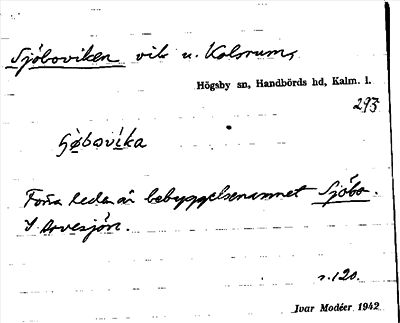 Sjöboviken vik u. Kalsrum,
Högsby sn, Handbörds hd, Kalm. l.
293
Förra leden är bebyggelsenamnet Sjöbo.
I Arvesjön.
s. 120.
Ivar Modéer 1942